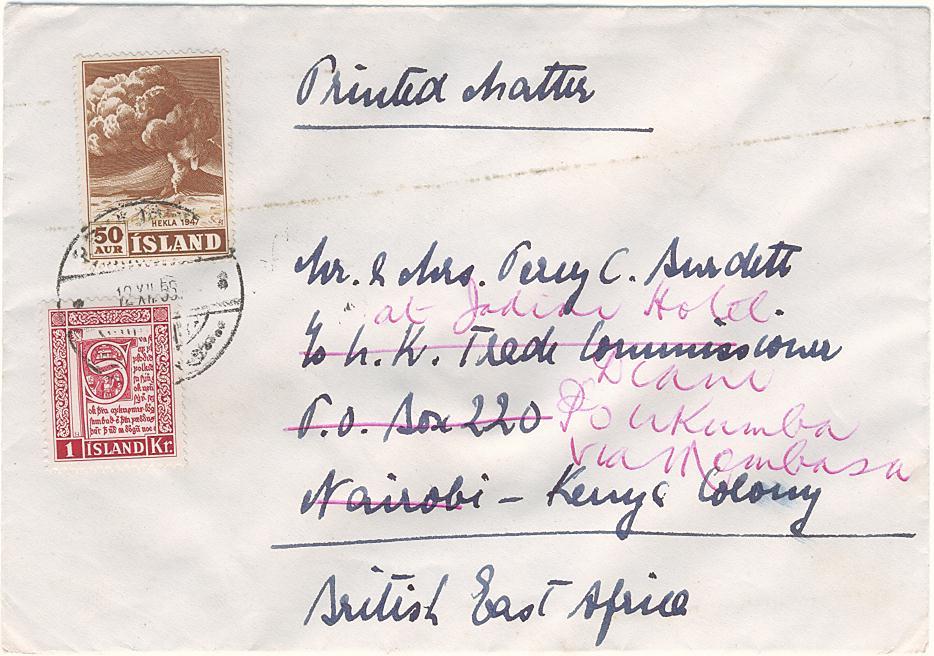 Printed Matter
HEKLA 1947
50
AUR
ÍSLAND
12.XII.55
1 ÍSLAND Kr.
Mr. & Mrs. Percy C. Burdett
at Jadini Hotel.
℅ U.K. Trade Commissioner
Diani
P.O. Box 220
P.O. Ukunda
via Mombasa
Nairobi - Kenya Colony
British East Africa